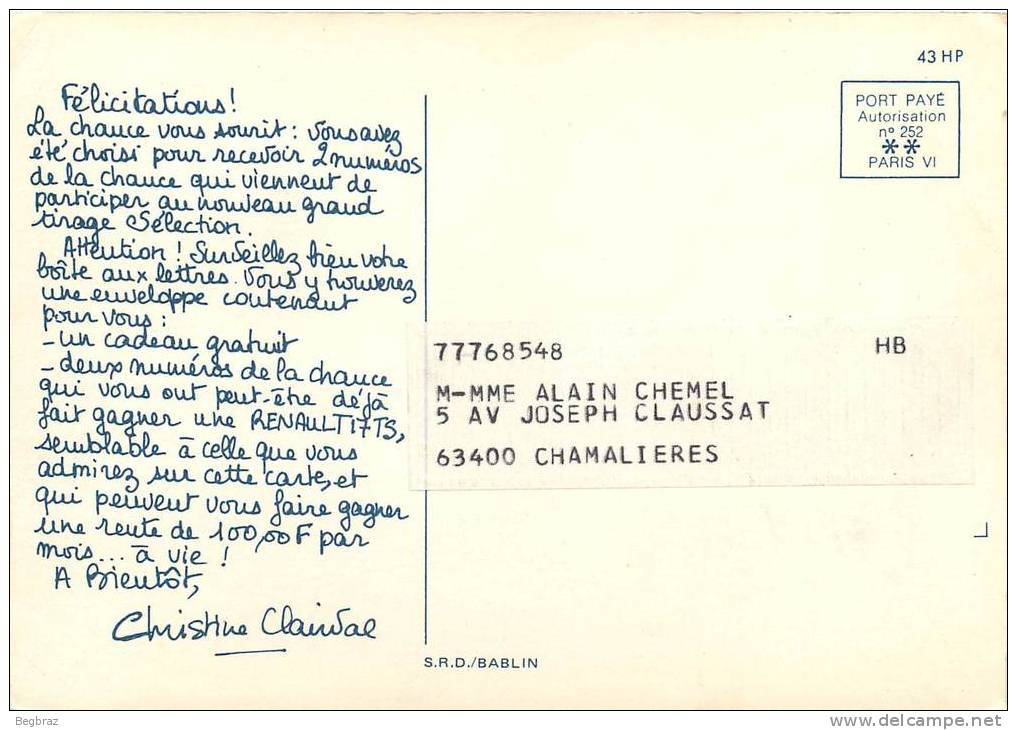 43 HP
PORT PAYÉ
Autorisation
nº 252
**
PARIS VI
Félicitations!
La chance vous sourit : vous avez
été choisi pour recevoir 2 numéros
de la chance qui viennent de
participer au nouveau grand
tirage Sélection.
Attention ! Surveillez bien votre
boîte aux lettres. Vous y trouverez
une enveloppe contenant
pour vous :
- un cadeau gratuit
- deux numéros de la chance
qui vous ont peut-être déjà
fait gagner une RENAULT 17TS,
semblable à celle que vous
admirez sur cette carte, et
qui peuvent vous faire gagner
une rente de 100,00F par
mois... à vie !
A Bientôt,
Christine Clairval
77768548 HB
M-MME ALAIN CHEMEL
5 AV JOSEPH CLAUSSAT
63400 CHAMALIERES
S.R.D./BABLIN
Begbraz
www.delcampe.net